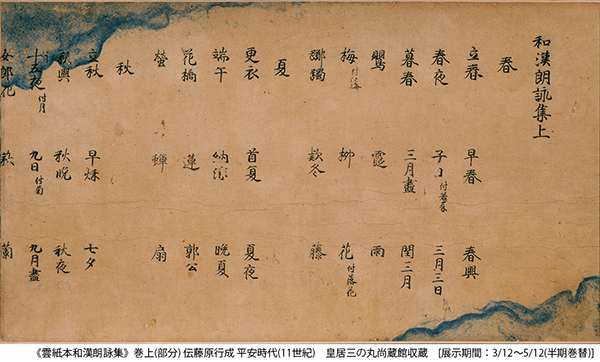 和漢朗詠集上
春
立春 早春 春興
春夜 子日付若菜 三月三日
暮春 三月盡 閏三月
鸎 霞 雨
梅付紅梅 柳 花付落花
躑躅 款冬 藤
夏
更衣 首夏 夏夜
端午 納涼 晩夏
花橘 蓮 郭公
螢 蟬 扇
秋
立秋 早秋 七夕
秋興 秋晩 秋夜
十五夜付月 九日付菊 九月盡
女郎花 萩 蘭
《雲紙本和漢朗詠集》巻上(部分) 伝藤原行成 平安時代(11世紀) 皇居三の丸尚蔵館収蔵 [展示期間：3/12～5/12(半期巻替)]